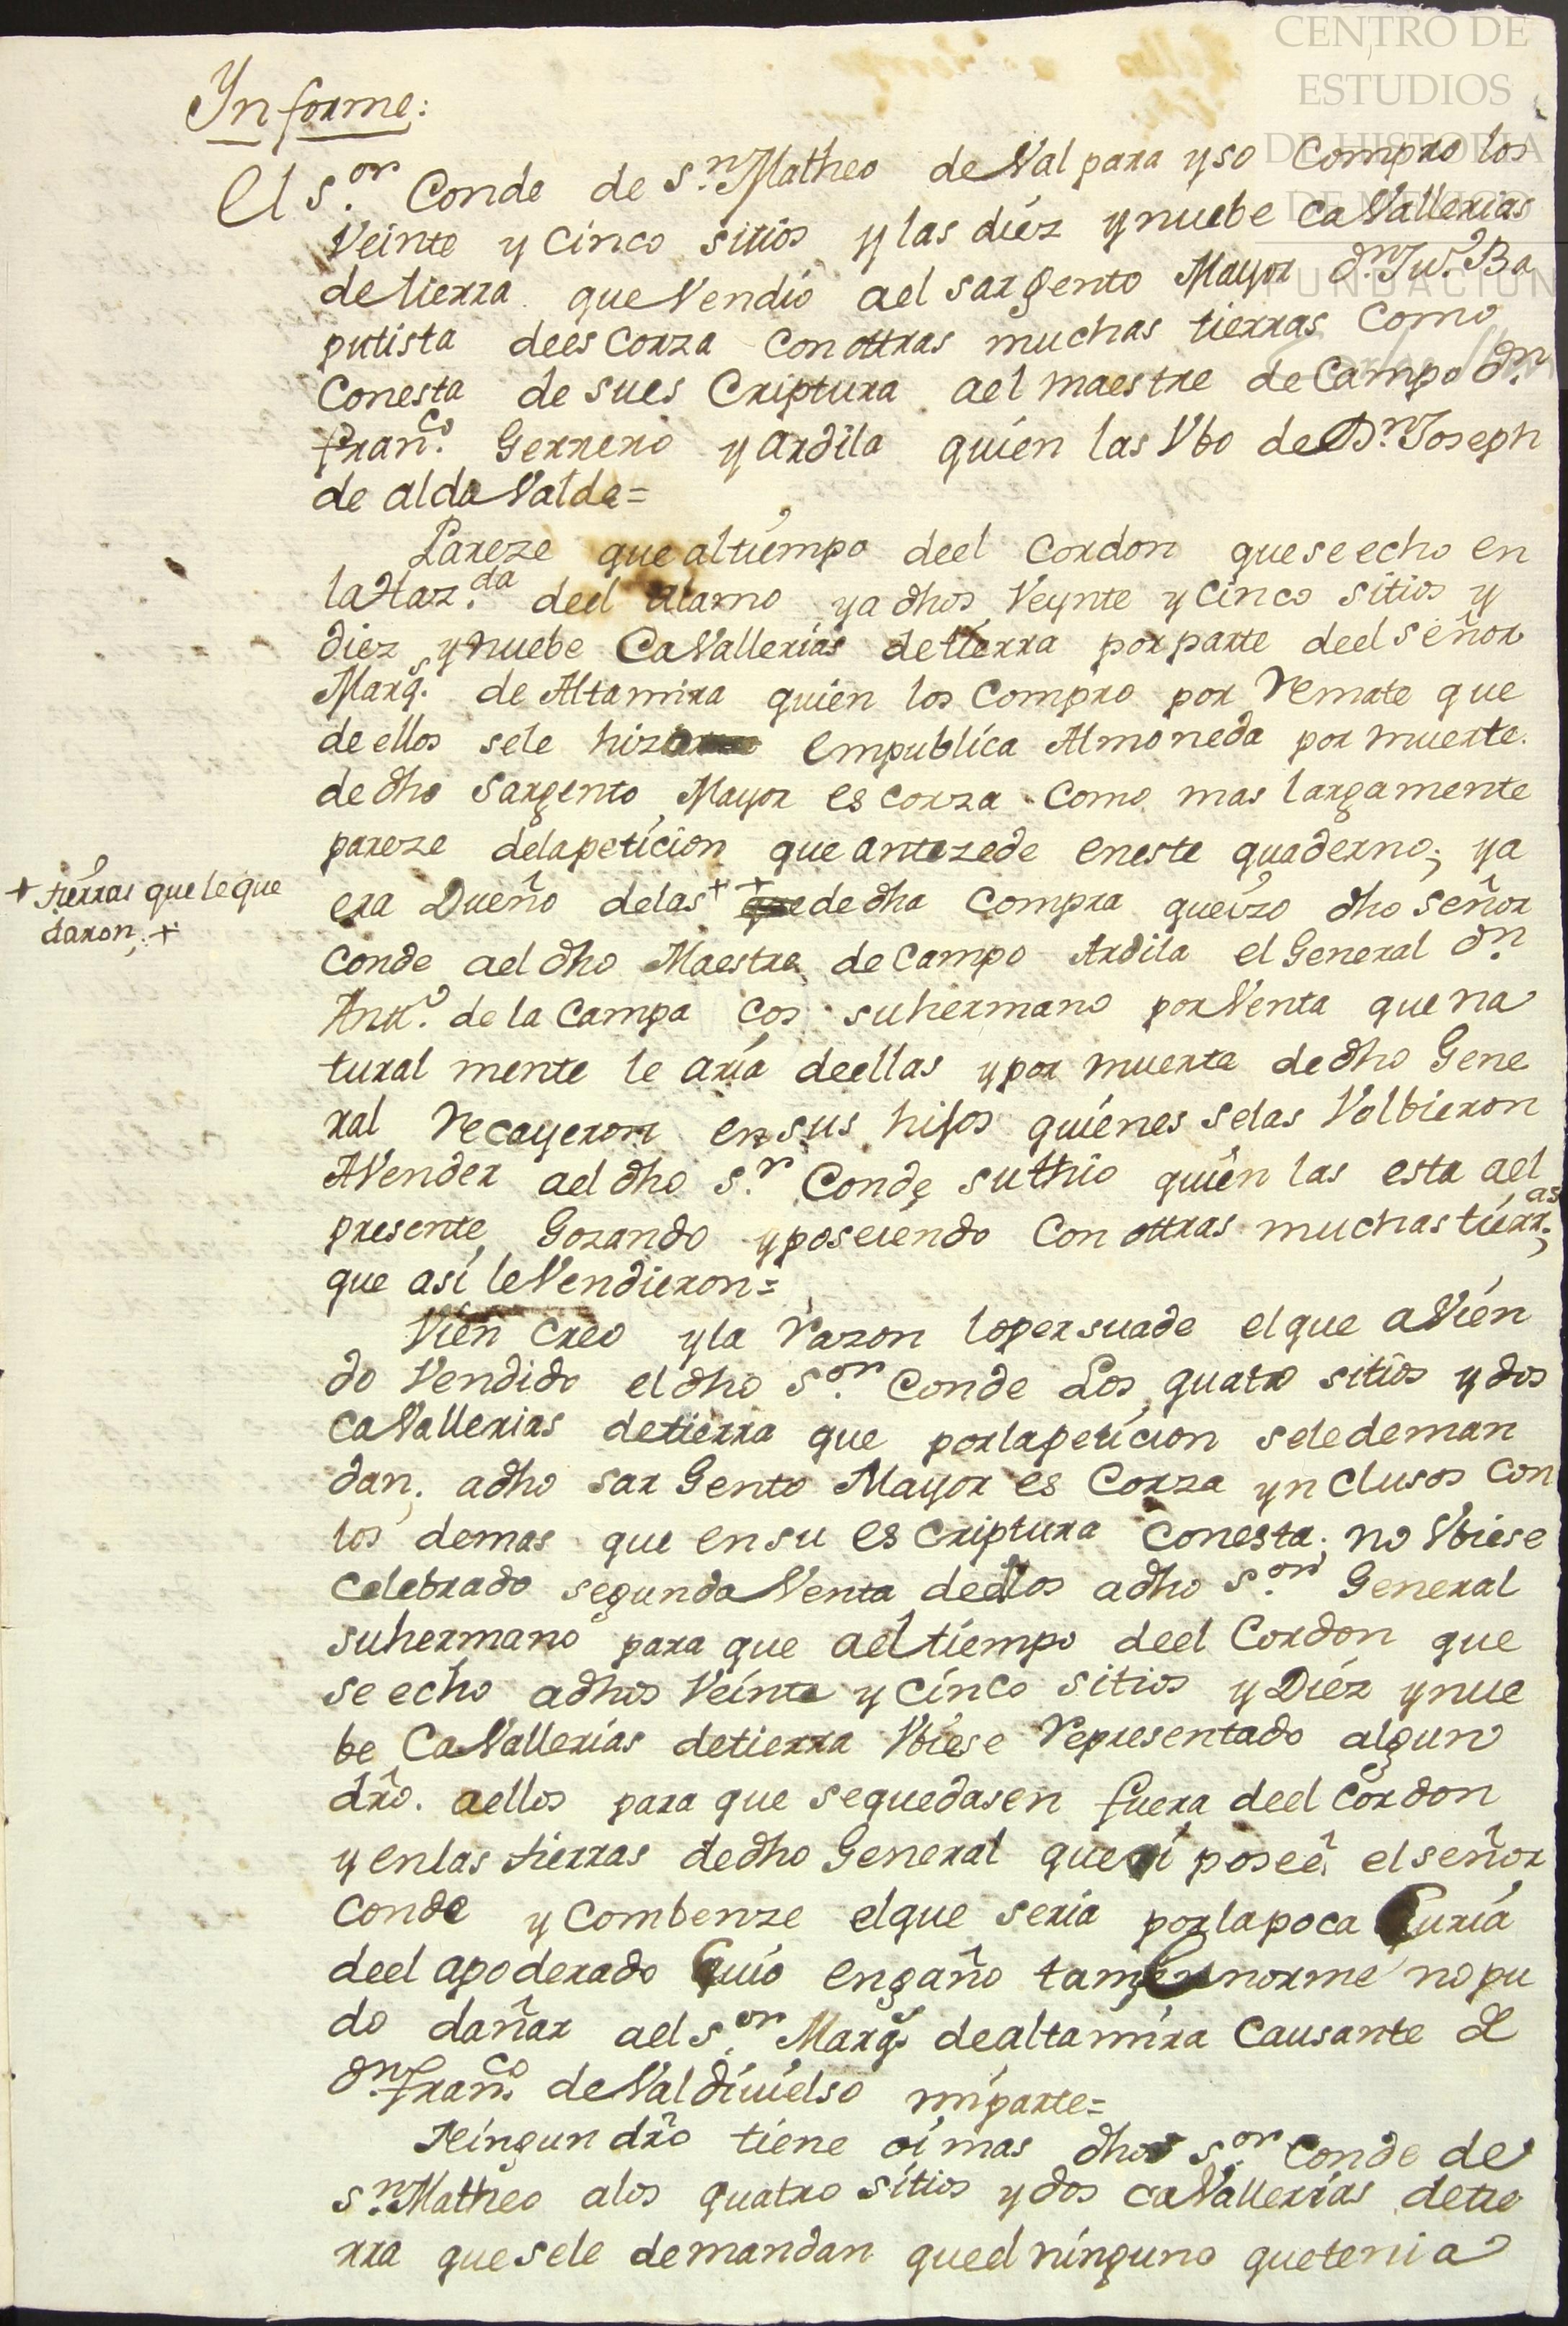 CENTRO DE
ESTUDIOS
DE HISTORIA
DE MEXICO
FUNDACION
Ynforme:
El s.or Conde de s.n Matheo de Valparayso Compro los
Veinte y Cinco sitios y las diez ynuebe CaVallerias
detierra que Vendio ael sargento Mayor dn Ju.o Ba
putista dees Corza Conottras muchas tierras Como
Conesta de sues Criptura ael maestre de Campo dn
fran.co Gerrero y Ardila quien las Vbo de Dn Joseph
de aldaValde=
Pareze que altiempo deel Cordon queseecho en
laHaz.da deel Alamo ya dhos Veynte y Cinco sitios y
diez ynuebe CaVallerias detierra porparte deel señor
Marq.s de Altamira quien los Compro por Remate que
de ellos sele hizo empublica Almoneda por muerte.
de dho sargento Mayor es corza Como mas largamente
pareze delapeticion que antezede eneste quaderno; ya
+ tierras que le que
daron; +
era Dueño delas + + dedha Compra queizo dho señor
Conde ael dho Maestre de Campo Ardila el General dn
Ant.o de la Campa Cos suhermano porVenta que na
tural mente le aria deellas y por muerte dedho Gene
ral Recayeron ensus hijos quienes selas Volbieron
AVender ael dho s.r Conde suthio quien las esta ael
presente Gozando yposeiendo Con ottras muchas tierr.as
que asi leVendieron=
Vien Creo yla Razon lopersuade elque aVien
do Vendido eldho s.or Conde Los quatro sitios y dos
caVallerias detierra que porlapeticion seledeman
dan; adho sarGento Mayor es Corza ynclusos Con
los demas que ensu escriptura Conesta; no Vbiese
Celebrado segundaVenta deellos adho s.or General
suhermano para que aeltiempo deel Cordon que
se echo adhos Veinte y Cinco sitios y Diez ynue
be CaVallerias detierra Vbiese Representado algun
dro. aellos para que sequedasen fuera deel Cordon
y enlas tierras dedho General que oi poseê el señor
Conde y Combenze elque seria porlapoca Curia
deel apoderado Cuio engaño tam enorme no pu
do dañar ael s.or Marq.s dealtamira Causante de
dn fran.co deValdiuielso miparte=
Ningun dro tiene oimas dho s.or Conde de
s.n Matheo alos quatro sitios ydos caVallerias detie
rra quesele demandan queel ninguno quetenia